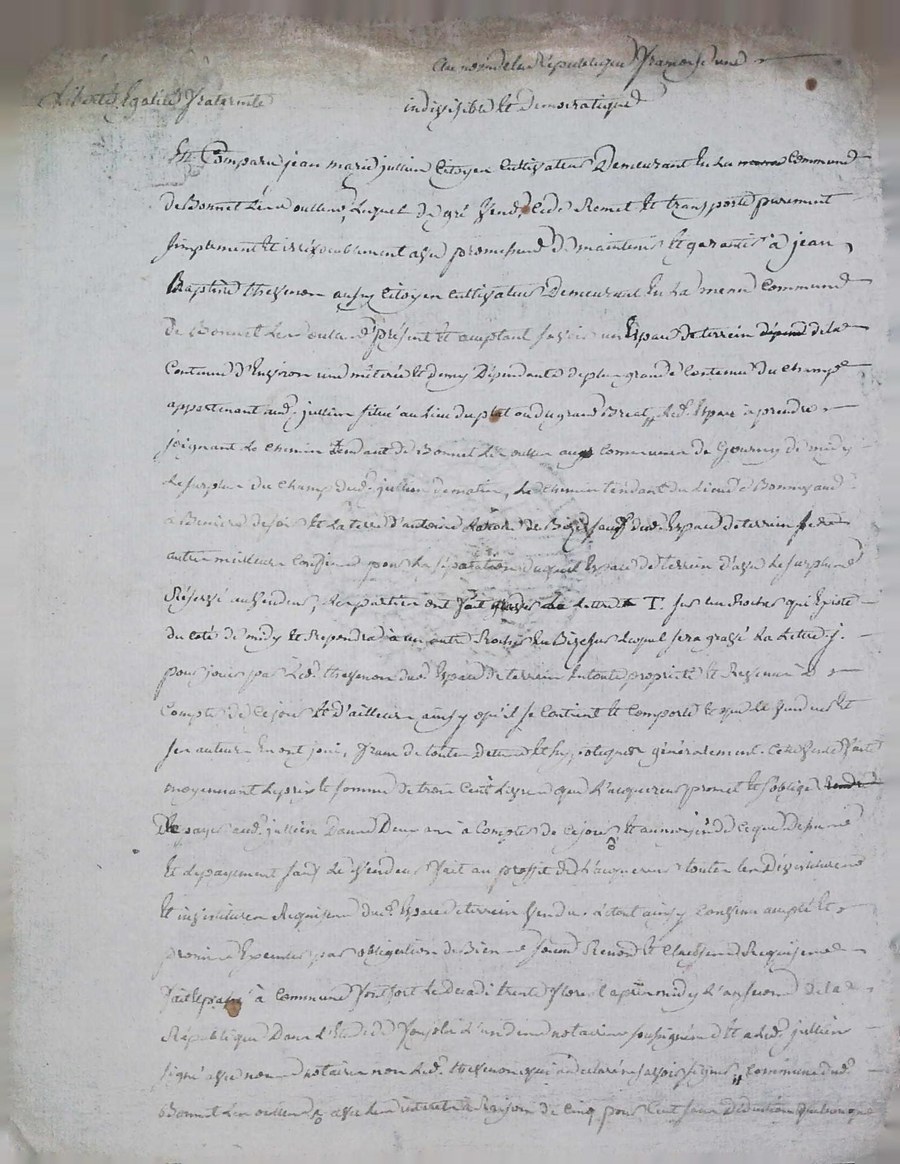 Au nom de la République françoise une
Liberté, Egalité fraternité
indivisible et Democratique
Est Comparu jean marie jullien Citoyen Cultivateur Demeurant en la commune
de Bonnet Les oulles, Lequel de gré vend, cede Remet et transporte purement
simplement et irrévocablement avec promesse de maintenir et garantir à jean
Baptiste thevenon aussy Citoyen Cultivateur Demeurant en la meme Commune
De Bonnet Les oulles présent et aceptant savoir un Espace de terrein de la
Contenue d'Environ une méterée et demy Dépendante de plus grande Contenue du champ
appartenant aud. jullien situé au Lieu du plat ou du grand led. Espace à prendre
joignant Le chemin tendant de Bonnet Les oulles aux communes de de midy
Le surplus du champ dud. jullien de matin, Le chemin tendant du Lieu de
de soir Et la terre d'antoine de Bize sauf dud. Espace de terrein
autres meilleurs Confins pour La séparation duquel Espace de terrein d'avec Le surplus
Réservé au vendeur, Les parties ont fait graver La Lettre T. sur un Rocher qui Existe
du coté de midy et Repondra à un autre Rocher En Bize sur Lequel sera gravé La Lettre j.
pour jouir par Led. thevenon dud. Espace de terrein En toute propriété et Revenus à
Compter de ce jour Et d'ailleurs ainsy qu'il se Contient et Comporte et que Le vendeur et
ses auteurs En ont joui, franc de toutes Dettes et hypoteques généralement. Cette vente faite
moyennant Le prix et somme de trois Cent Livres que L'acquereur promet et s'oblige
De payer aud. jullien Dans Deux ans à Compter de ce jour Et au moyen de ce que Dessus
Et du payement sauf Le vendeur fait au proffit de L'acquereur toutes Les Dévestitures
Et investitures Requises dud. Espace de terrein vendu. L'étant ainsy Convenu accepté Et
promis Executer par obligation de Biens Renon. Et Clauses Requises
fait et passé à Commune Fonfort Le Decadi trente floreal après midy L'an second de la
République Dans L'Etude de L'un des notaires soussignés Et a Led. jullien
signé avec nous notaires non Led. thevenon qui a declaré ne savoir signer, Commune dud.
Bonnet Les oulles avec Les interets à Raison de cinq pour Cent sans Déduction quelconque